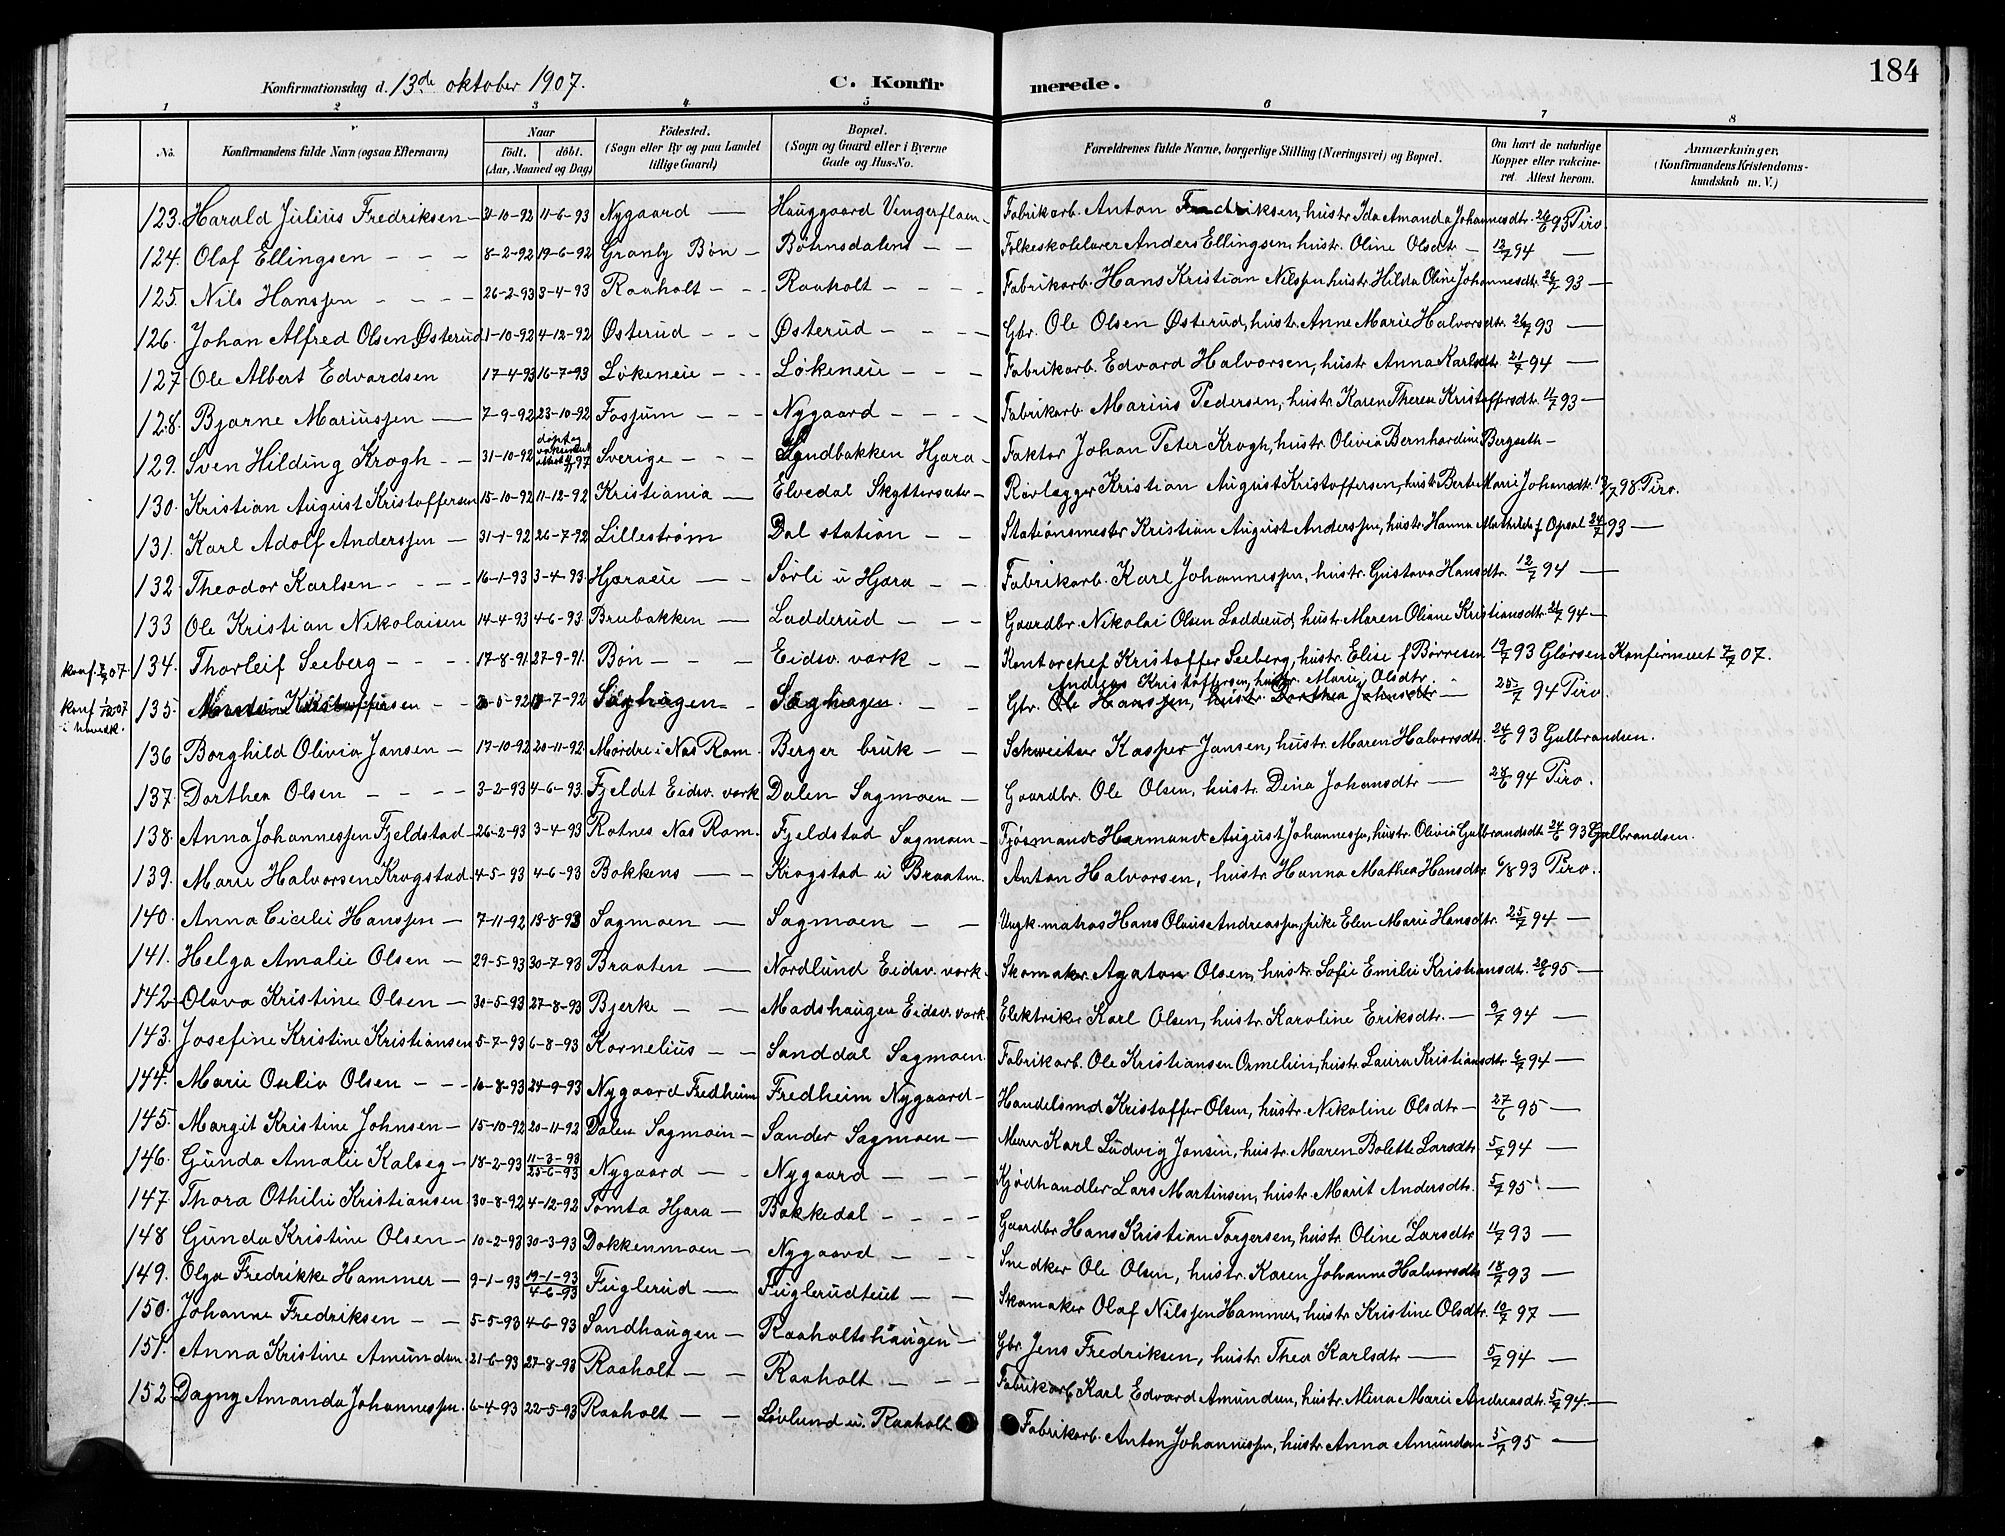 184
Konfirmationsdag d. 13de oktober 1907.
C. Konfirmerede.
1 2 3 4 5 6 7 8
No. | Konfirmandens fulde Navn (ogsaa Efternavn) | Naar født, døbt. (Aar, Maaned og Dag) | Födested. (Sogn eller By og paa Landet tillige Gaard) | Bopæl. (Sogn og Gaard eller i Byerne Gade og Hus-No. | Forældrenes fulde Navne, borgerlige Stilling (Næringsvei) og Bopæl. | Om havt de naturlige Kopper eller vakcineret. Attest herom. | Anmærkninger, (Konfirmandens Kristendomskundskab m. V.)
123. Harald Julius Fredriksen 21-10-92 11-6-93 Nygaard Hauggaard Fabrikarb. Anton Fredriksen, hustr. Ida Amanda Johannesdtr. 26/6 95 Piro.
124. Olaf Ellingsen 8-2-92 19-6-92 Granly Bön Bötnsdalens Folkeskolelærer Anders Ellingsen, hustr. Oline Olsdtr 12/7 94
125. Nils Hanssen 26-2-93 3-4-93 Raaholt Raaholt Fabrikarb. Hans Kristian Nilssen hustr. Hilda Oline Johannesdtr. 26/7 93
126. Johan Alfred Olsen Østerud 1-10-92 4-12-92 Østerud Østerud Gbr. Ole Olsen Østerud, hustr. Anne Marie Halvorsdtr. 26/7 93
127 Ole Albert Edvardsen 17-4-93 16-7-93 Lökeneie Lökeneie Fabrikarb. Edvard Halvorsen, hustr Anna Karlsdtr. 21/7 94
128. Bjarne Mariussen 7-9-92 23-10-92 Fossum Nygaard Fabrikarb. Marius Pedersen, hustr. Karen Thea Kristoffersdtr. 11/7 93
129. Sven Hilding Krogh 31-10-92 Sverige Sandbakken Hjæra Faktor Johan Peter Krogh, hustr. Olivia Bernhardine Bergseth
130. Kristian August Kristoffersen 15-10-92 11-12-92 Kristiania Elvedal Skyttersæter Rörlægger Kristian August Kristoffersen, hustr Berte Marie Johansdtr. 98. Piro.
131. Karl Adolf Anderssen 31-1-92 26-7-92 Lilleström Dal station Stationsmester Kristian August Anderssen, hustr. Hanna Mathilde f Opsal 24/7 93
132 Theodor Karlsen 16-1-93 3-4-93 Hjæraeie Sörli u Hjæra Fabrikarb. Karl Johannessen, hustr. Gustava Hansdtr. 12/7 94
133 Ole Kristian Nikolaisen 14-4-93 4-6-93 Brubakken Ladderud Gaardbr. Nikolai Olsen Ladderud, hustr. Maren Oliane Kristiansdtr. 21/7 94
konf. 7/7 07 134. Thorleif Seeberg 17-8-91 27-9-91 Bön Eidsv. værk Kontorchef Kristoffer Seeberg, hustr. Elise f Börresen 19/7 93 Glörsen Konfirmeret 7/7 07.
Andreas Kristoffersen, hustr. Marie Olsdtr.
konf 07 135. Kristoffersen 5-92 7-92 Saghagen Saghagen Gbr. Ole Hanssen, hustr. Dorthea Johnsdtr 25/7 94 Piro.
136 Borghild Olivia Jansen 17-10-92 20-11-92 Mordre i Næs Rom. Berger bruk Schweitser Kasper Jansen, hustr. Maren Halvorsdtr. 24/6 93 Gulbrandsen.
137. Dorthea Olsen 3-2-93 4-6-93. Fjeldet Eidsv. værk Dalen Sagmoen Gaardbr. Ole Olsen, hustr. Dina Johansdtr 28/6 94 Piro.
138. Anna Johannessen Fjeldstad 26-2-93 3-4-93 Rotnes Næs Rom. Fjeldstad Sagmoen Fjösmand Hermand August Johannessen, hustr. Olivia Gulbrandsdtr. 24/6 93 Gulbrandsen.
139. Marie Halvorsen Krogstad 4-5-93 4-6-93 Bakkens Krogstad u Braaten. Anton Halvorsen, hustr. Hanna Mathea Hansdtr 6/8 93 Piro.
140. Anna Cicilie Hanssen 7-11-92 13-8-93 Sagmoen Sagmoen Ungk. matros Hans Olaus Andreassen, pike Elen Marie Hansdtr. 25/7 94
141. Helga Amalie Olsen 29-5-93 30-7-93 Braaten Nordlund Eidsv. værk. Skomaker Agaton Olsen, hustr. Sofie Emilie Kristiansdtr. 26/6 95
142 Olava Kristine Olsen 30-5-93 27-8-93 Bjerke Madshaugen Eidsv. værk. Elektriker Karl Olsen, hustr. Karoline Eriksdtr. 9/7 94
143. Josefine Kristine Kristiansen 5-7-93 6-8-93 Kornelius Sanddal Sagmoen Fabrikarb. Ole Kristiansen Ormelien, hustr. Laura Kristiansdtr 6/7 94
144. Marie Oselia Olsen 10-8-93 24-9-93 Nygaard Fredheim Fredheim Nygaard Handelsmd Kristoffer Olsen, hustr. Nikoline Olsdtr 27/6 95
145. Margit Kristine Johnsen 15-10-92 20-11-92 Dalen Sagmoen Sander Sagmoen Murer Karl Ludvig Jonsen, hustr. Maren Bolette Larsdtr. 5/7 94
146. Gunda Amalie Kalseg 18-2-93 11-3-93 25-6-93 Nygaard Nygaard Kjödhandler Lars Martinsen, hustr. Marit Andersdtr. 5/7 95
147. Thora Othilie Kristiansen 30-8-92 4-12-92 Tomta Hjæra Bakkedal Gaardbr Hans Kristian Torgersen, hustr Oline Larsdtr 11/7 93
148 Gunda Kristine Olsen 10-2-93 30-3-93 Dokkenmoen Nygaard Snedker Ole Olsen, hustr. Karen Johanne Halvorsdtr 18/7 93
149. Olga Fredrikke Hammer 9-1-93 19-1-93 4-6-93 Fuglerud Fuglerudteiet Skomaker Olaf Nilssen Hammer, hustr Kristine Olsdtr. 10/7 97
150. Johanne Fredriksen 5-5-93 4-6-93 Sandhaugen Raaholtshaugen Gbr. Jens Fredriksen, hustr. Thea Karlsdtr 5/7 94
151. Anna Kristine Amundsen 21-6-93 27-8-93 Raaholt Raaholt Fabrikarb. Karl Edvard Amundsen, hustr. Mina Marie Andreasdtr. 5/7 94.
152 Dagny Amanda Johannessen. 6-4-93 22-5-93 Raaholt Lövlund u. Raaholt Fabrikarb. Anton Johannessen, hustr. Anna Amundsen 5/7 95